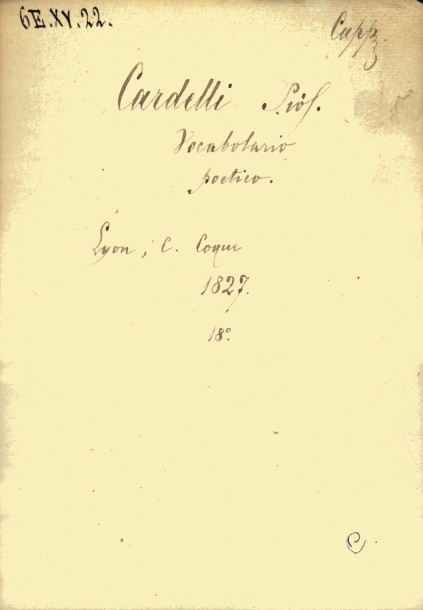 6E.XV.22.
Capp.
Cardelli Prof.
Vocabolario
poetico.
Lyon, C. Coque
1827.
18º
C